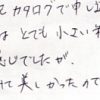 てカタログで申し込
は とても 小さい
感じでしたが、
て美しかったので